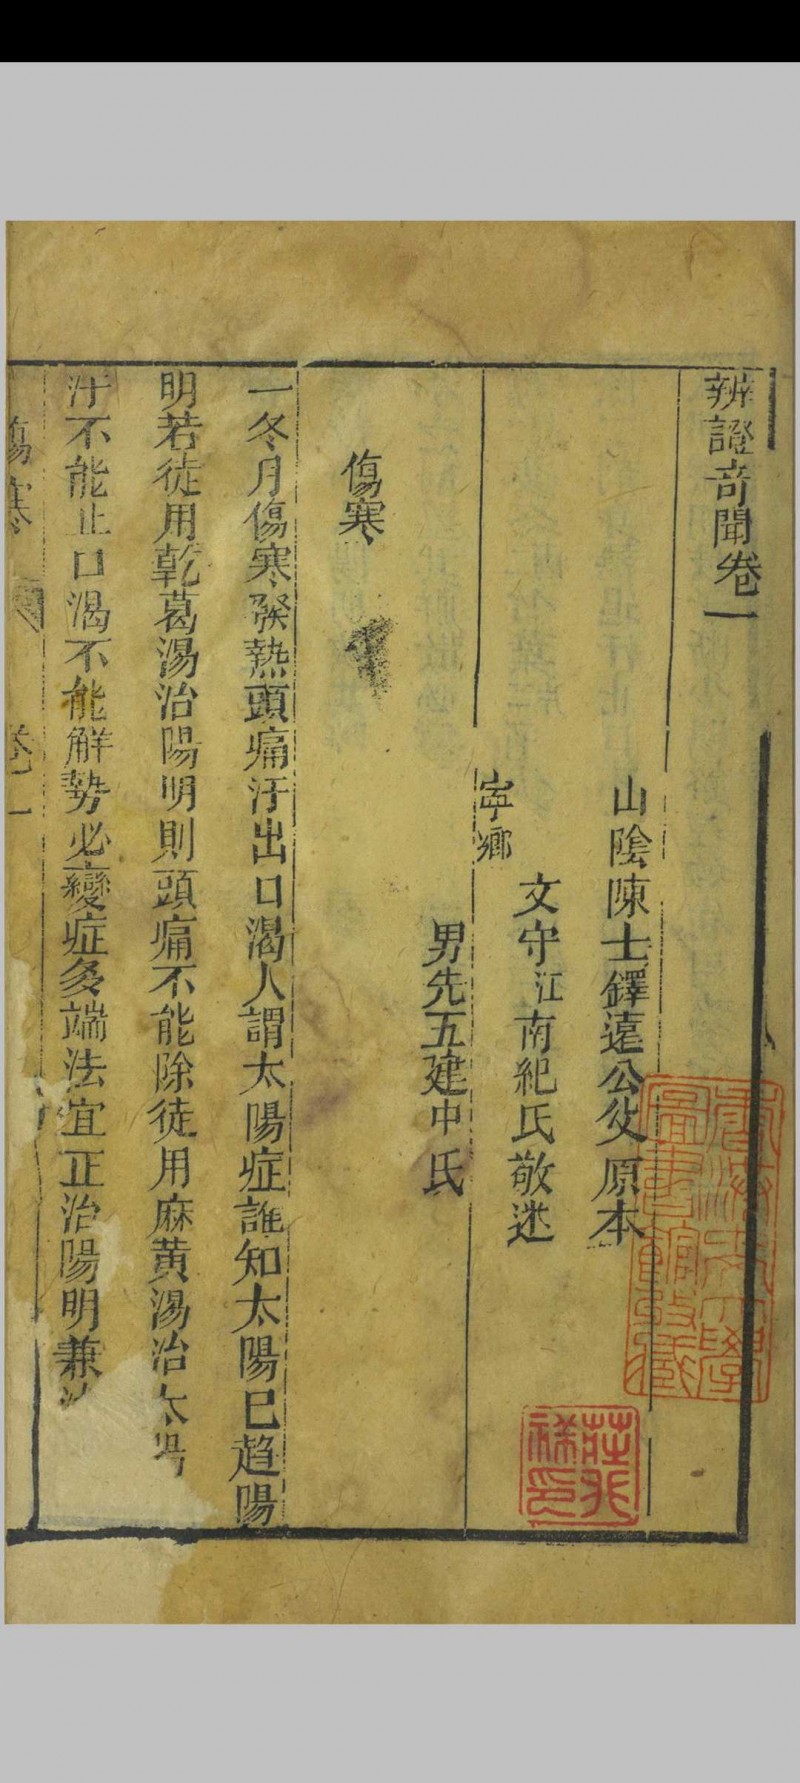 辨證奇聞卷一
山陰陳士鐸遠公父原本
寧鄉
文守江南紀氏敬述
男先五建中氏
傷寒
一冬月傷寒發熱頭痛汗出口渴人謂太陽症誰知太陽已趋陽
明若徒用乾葛湯治陽明則頭痛不能除徒用麻黄湯治太陽
汗不能止口渴不能解勢必變症多端法宜正治陽明兼
傷寒
卷一
圖書館攷藏
莊兆祥印